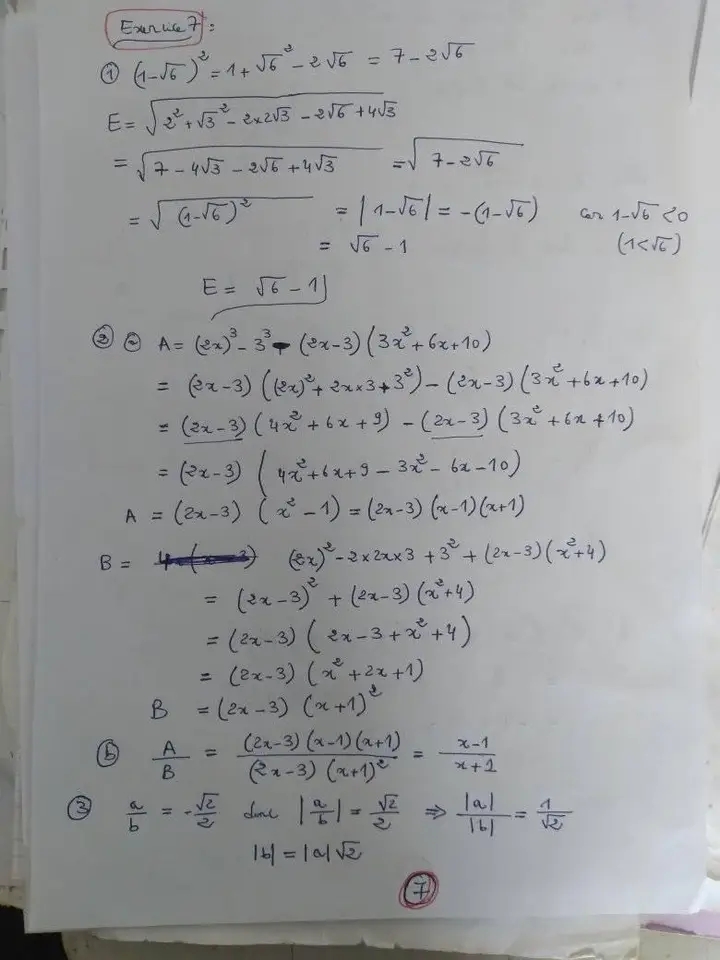 Exercice 7 :
① (1-√6)² = 1 + √6² - 2√6 = 7 - 2√6
E = √(2² + √3² - 2×2√3 - 2√6 + 4√3)
= √(7 - 4√3 - 2√6 + 4√3) = √(7 - 2√6)
= √((1-√6)²) = |1-√6| = -(1-√6) car 1-√6 < 0
= √6 - 1 (1<√6)
E = √6 - 1
② ⓐ A = (2x)³ - 3³ - (2x-3)(3x²+6x+10)
= (2x-3)((2x)² + 2x×3 + 3²) - (2x-3)(3x²+6x+10)
= (2x-3)(4x²+6x+9) - (2x-3)(3x²+6x+10)
= (2x-3)(4x²+6x+9 - 3x² - 6x - 10)
A = (2x-3)(x²-1) = (2x-3)(x-1)(x+1)
B = (2x)² - 2×2x×3 + 3² + (2x-3)(x²+4)
= (2x-3)² + (2x-3)(x²+4)
= (2x-3)(2x-3+x²+4)
= (2x-3)(x²+2x+1)
B = (2x-3)(x+1)²
ⓑ A/B = (2x-3)(x-1)(x+1)/(2x-3)(x+1)² = x-1/x+1
③ a/b = -√2/2 donc |a/b| = √2/2 ⇒ |a|/|b| = 1/√2
|b| = |a|√2
7